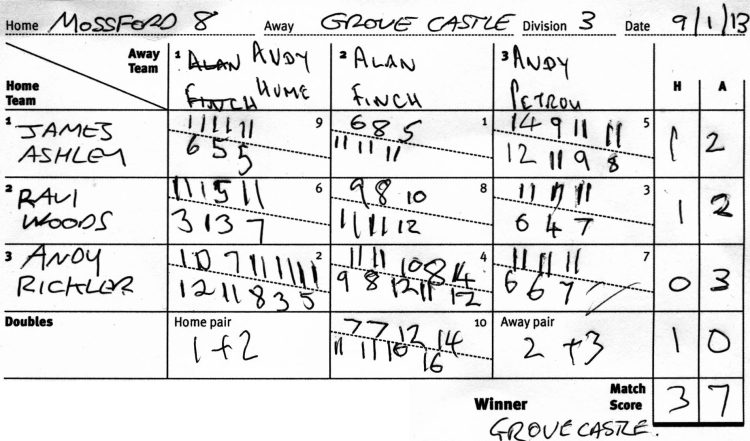 Home MOSSFORD 8 Away GROVE CASTLE Division 3 Date 9/1/13
Away Team 1 ALAN FINCH ANDY HUME 2 ALAN FINCH 3 ANDY PETROU H A
Home Team
1 JAMES ASHLEY 11 11 11 9 6 8 5 1 14 9 11 11 5 1 2
6 5 5 11 11 11 12 11 9 8
2 RAVI WOODS 11 15 11 6 9 8 10 8 11 11 11 3 1 2
3 13 7 11 11 12 6 4 7
3 ANDY RICKLER 10 7 11 11 11 2 11 11 10 8 14 4 11 11 11 7 0 3
12 11 8 3 5 9 8 12 11 12 6 6 7
Doubles Home pair 7 7 12 14 10 Away pair 1 0
1+2 11 11 10 16 2+3
Winner Match Score 3 7
GROVE CASTLE.